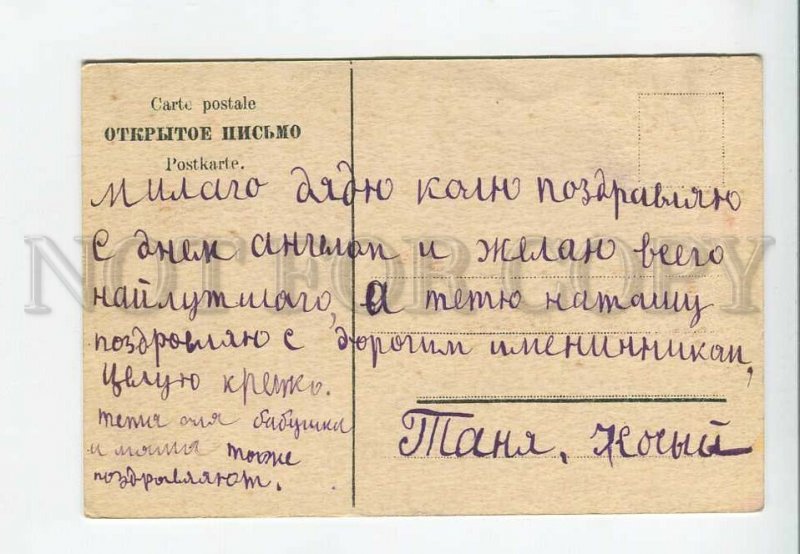 Carte postale
ОТКРЫТОЕ ПИСЬМО
Postkarte.
милаго дядю колю поздравляю
с днем ангелап и желаю всего
найлутшаго, а тетю наташу
поздровляю с дорогим именинникап,
Целую крепко.
тетя оля бабушка
и мама тоже
поздравляют.
Таня.
NOT FOR COPY